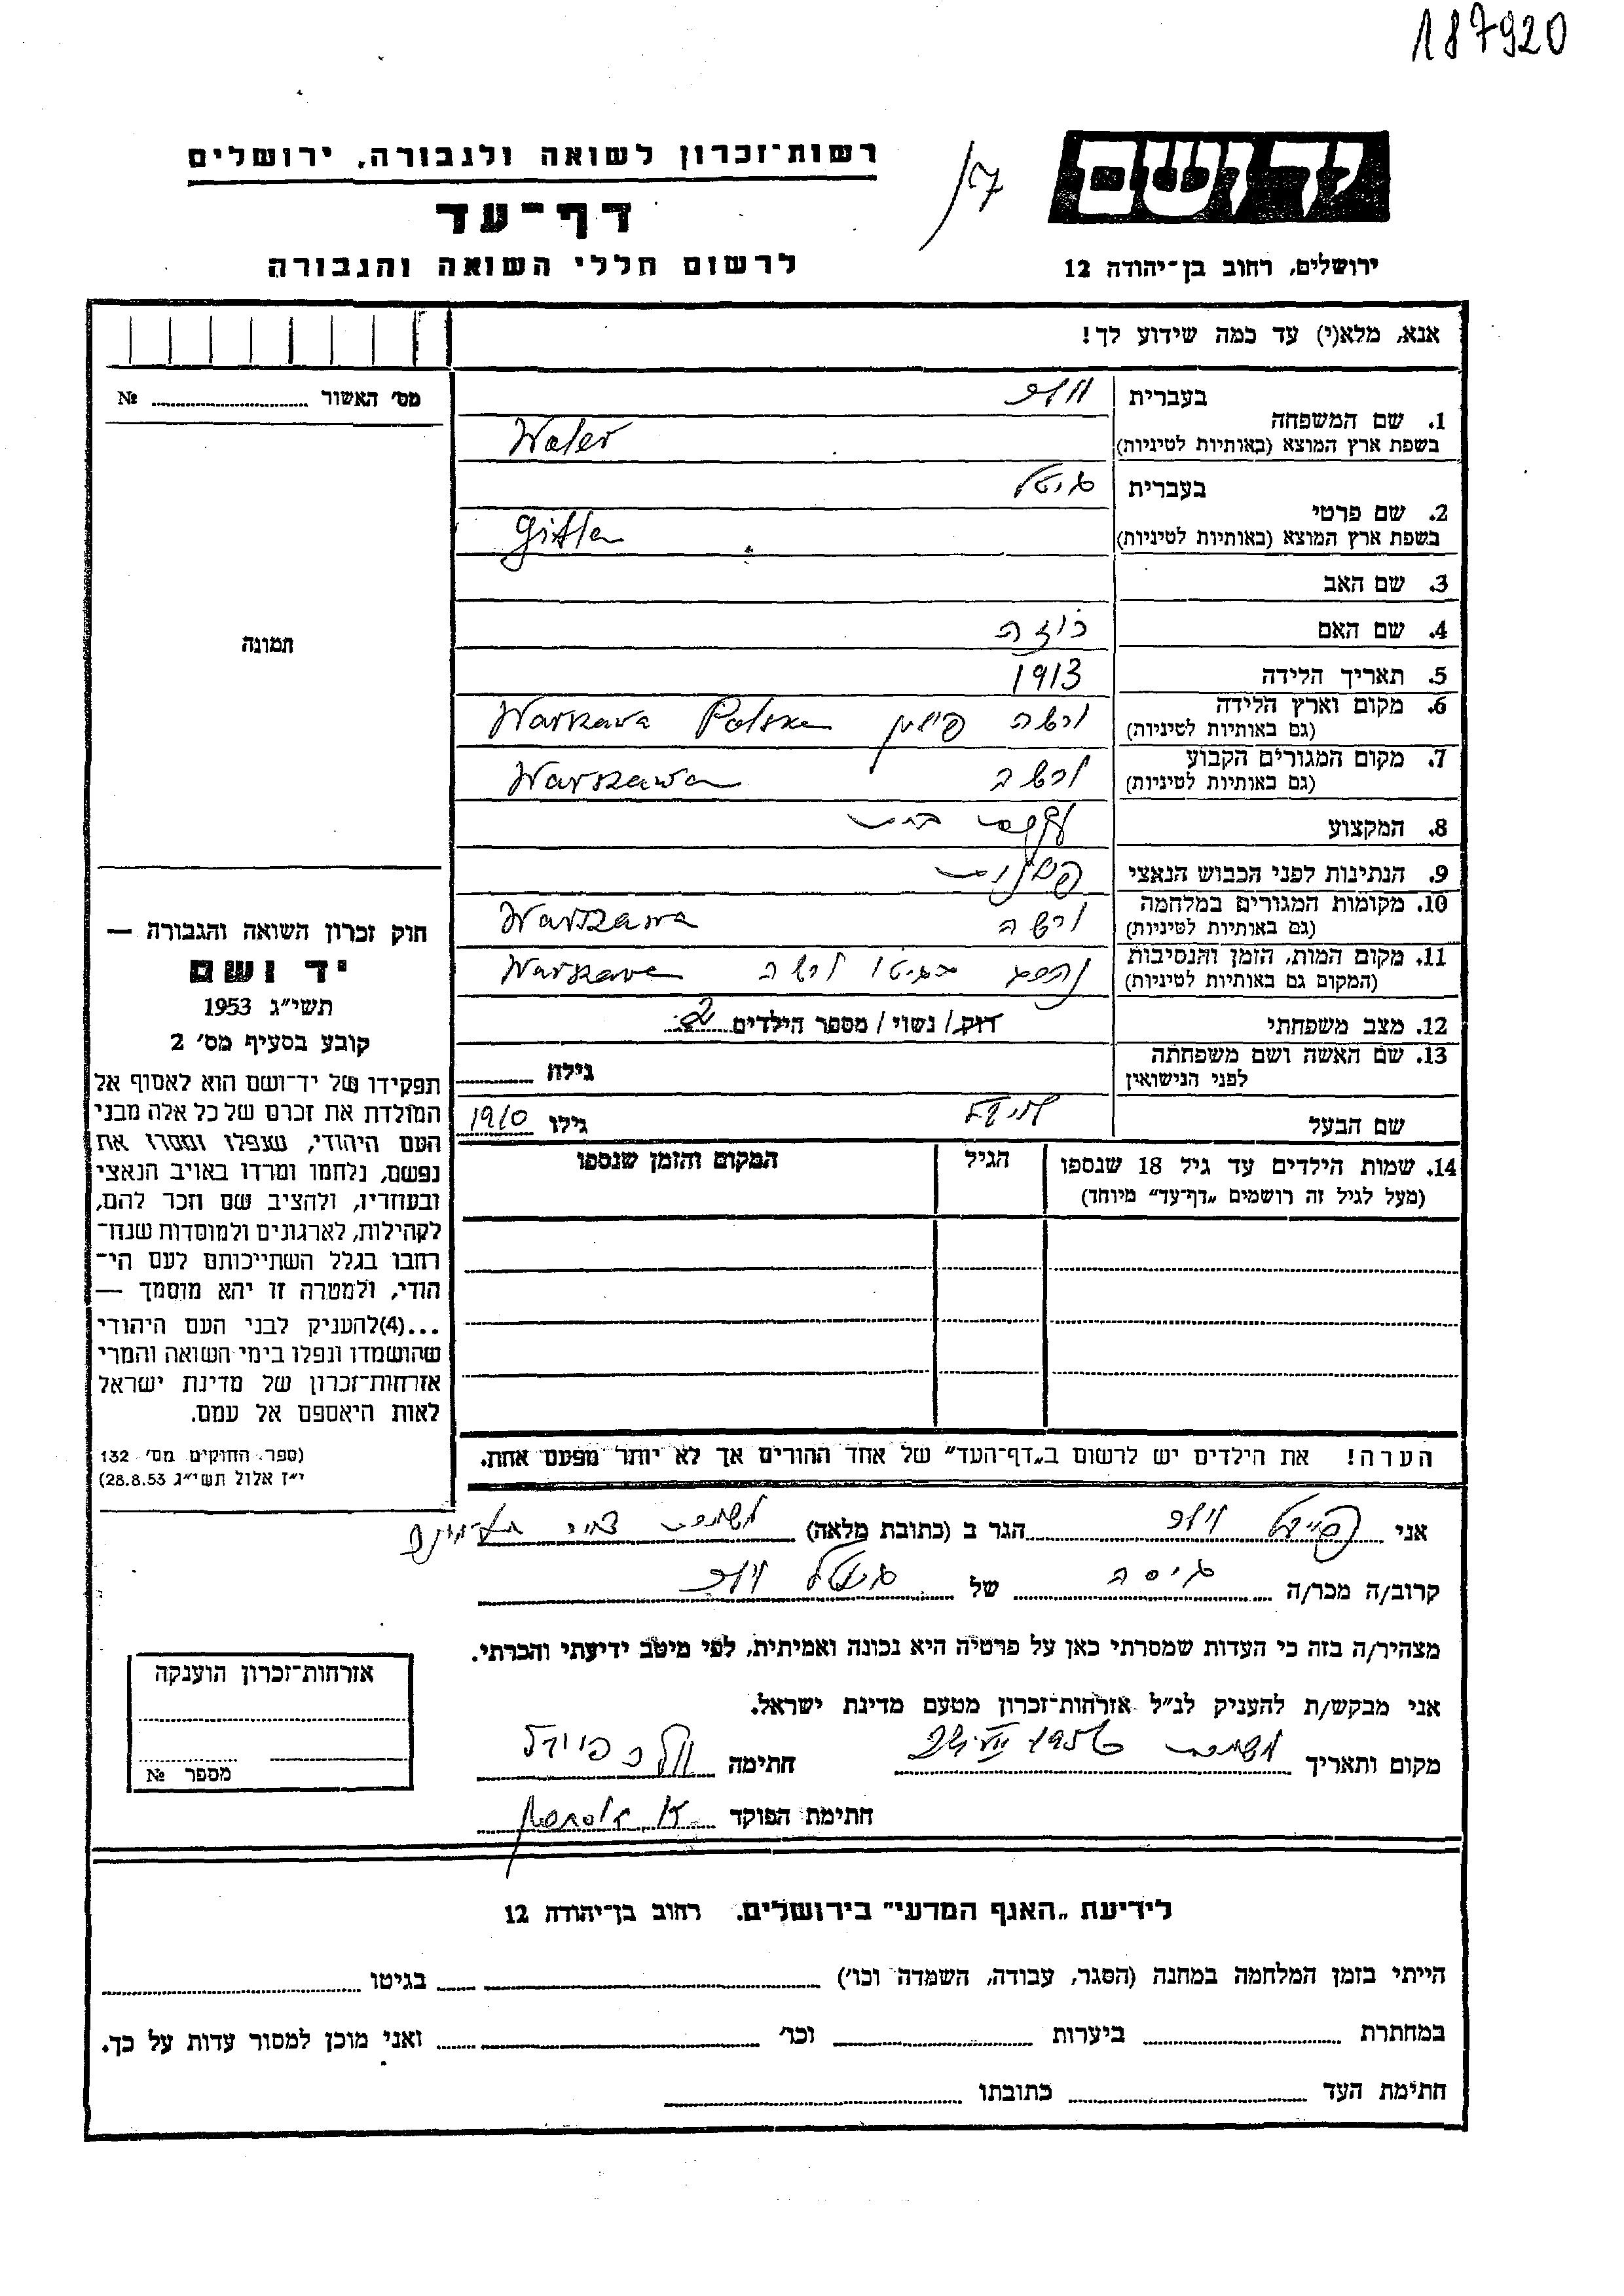 187920
יד ושם
רשות־זכרון לשואה ולגבורה, ירושלים
דף־עד
לרשום חללי השואה והגבורה
ירושלים, רחוב בן־יהודה 12
אנא, מלא(י) עד כמה שידוע לך!
מס׳ האשור № 
תמונה
1. שם המשפחה
בעברית
בשפת ארץ המוצא (באותיות לטיניות) Waler
2. שם פרטי
בעברית גיטל
בשפת ארץ המוצא (באותיות לטיניות) Gitla
3. שם האב
4. שם האם רוזה
5. תאריך הלידה 1913
6. מקום וארץ הלידה (גם באותיות לטיניות) ורשה פולין Warszawa Polska
7. מקום המגורים הקבוע (גם באותיות לטיניות) ורשה Warszawa
8. המקצוע עקרת בית
9. הנתינות לפני הכבוש הנאצי פולנית
10. מקומות המגורים במלחמה (גם באותיות לטיניות) ורשה Warszawa
11. מקום המות, הזמן והנסיבות (המקום גם באותיות לטיניות) בגיטו ורשה Warszawa
12. מצב משפחתי רווק/ נשוי/ מספר הילדים 2
13. שם האשה ושם משפחתה לפני הנישואין גילה
שם הבעל גילו 1910
14. שמות הילדים עד גיל 18 שנספו
(מעל לגיל זה רושמים „דף־עד” מיוחד)
הגיל
המקום והזמן שנספו
הערה! את הילדים יש לרשום ב„דף־העד” של אחד ההורים אך לא יותר מפעם אחת.
חוק זכרון השואה והגבורה —
יד ושם
תשי״ג 1953
קובע בסעיף מס׳ 2
תפקידו של יד־ושם הוא לאסוף אל
המולדת את זכרם של כל אלה מבני
העם היהודי, שנפלו ומסרו את
נפשם, נלחמו ומרדו באויב הנאצי
ובעוזריו, ולהציב שם וזכר להם,
לקהילות, לארגונים ולמוסדות שנח־
רבו בגלל השתייכותם לעם הי־
הודי, ולמטרה זו יהא מוסמך —
...(4)להעניק לבני העם היהודי
שהושמדו ונפלו בימי השואה והמרי
אזרחות־זכרון של מדינת ישראל
לאות היאספם אל עמם.
(ספר החוקים מס׳ 132
י״ז אלול תשי״ג 28.8.53)
אני הגר ב (כתובת מלאה)
קרוב/ה מכר/ה גיסה של גיטל
מצהיר/ה בזה כי העדות שמסרתי כאן על פרטיה היא נכונה ואמיתית, לפי מיטב ידיעתי והכרתי.
אני מבקש/ת להעניק לנ״ל אזרחות־זכרון מטעם מדינת ישראל.
מקום ותאריך 1956 חתימה
חתימת הפוקד
אזרחות־זכרון הוענקה
מספר №
לידיעת „האגף המדעי” בירושלים. רחוב בן־יהודה 12
הייתי בזמן המלחמה במחנה (הסגר, עבודה, השמדה וכו׳) בגיטו
במחתרת ביערות וכו׳ ואני מוכן למסור עדות על כך.
חתימת העד כתובתו